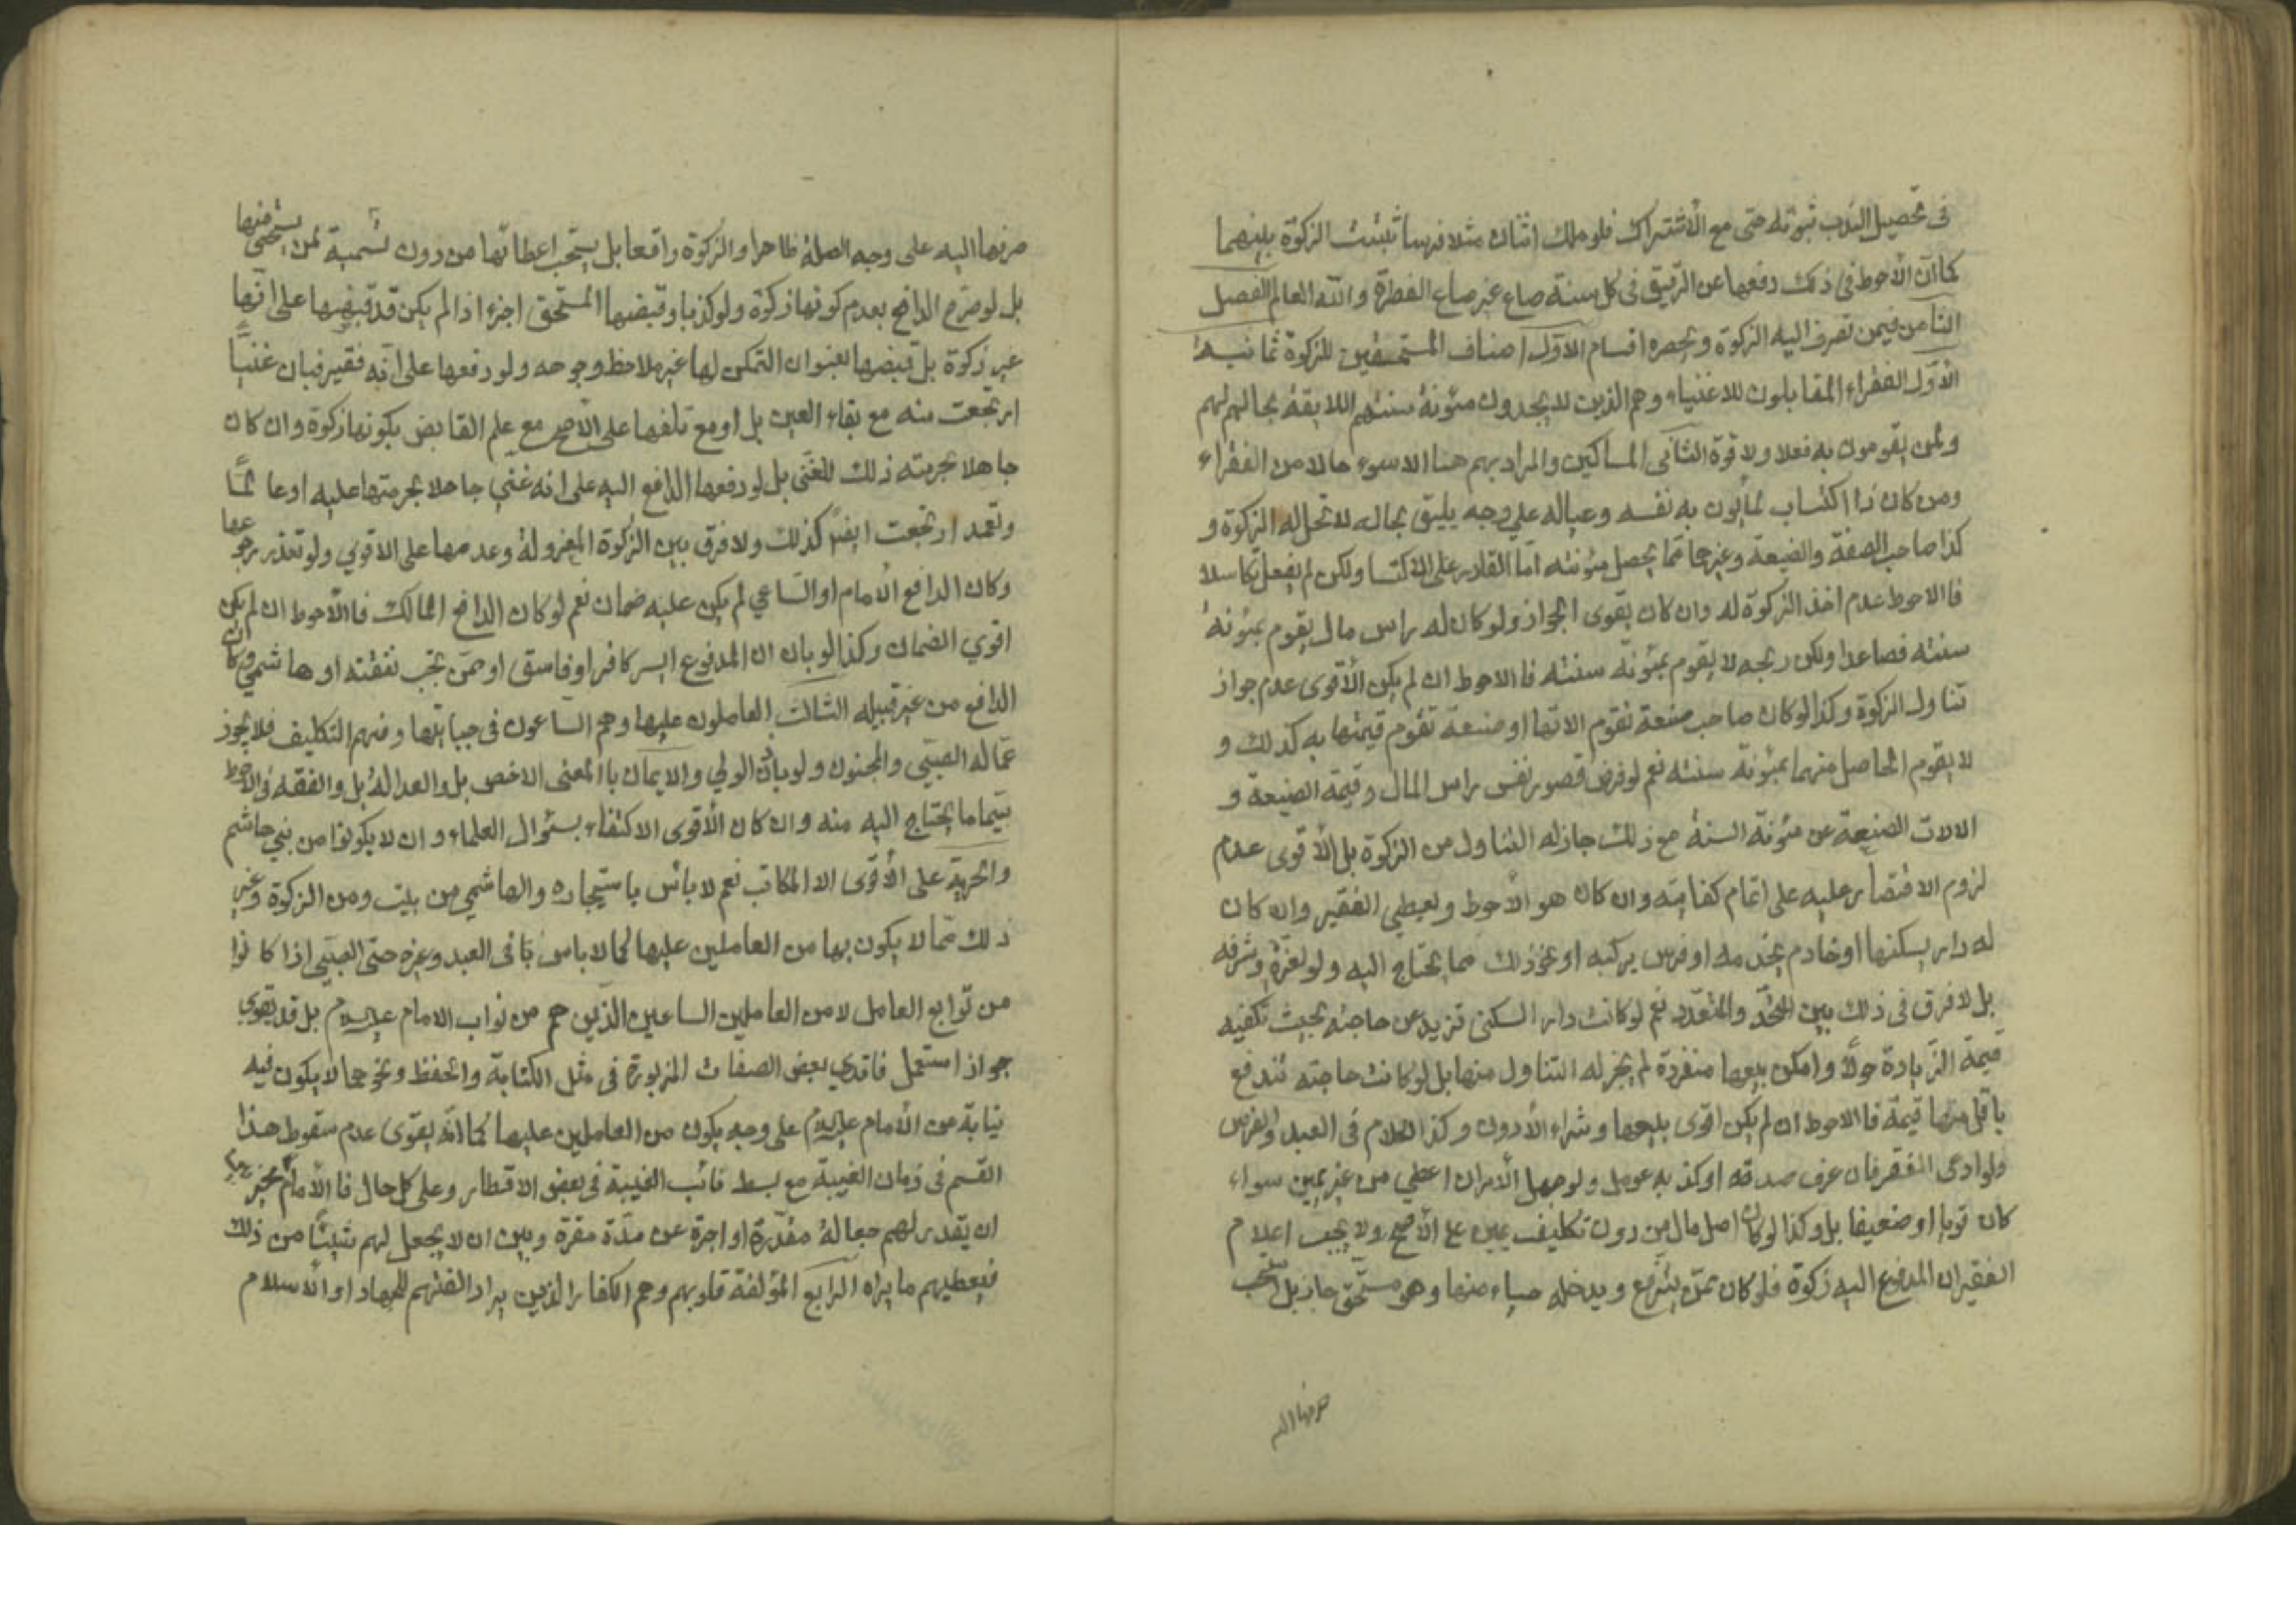 فى تحصيل الندب ثبوته حتى مع الاشتراك فلو ملك اثنان مثلا فرسا تثبت الزكوة بينهما
كما ان الاحوط فى ذلك دفعها عن الرقيق فى كل سنة صاع غير صاع الفطرة والله العالم الفصل
الثامن فيمن تصرف اليه الزكوة ويحصره اقسام الاول اصناف المستحقين للزكوة ثمانية
الاول الفقراء المقابلون للاغنياء وهم الذين لا يجدون مئونة سنتهم اللايقة بحالهم لهم
ولمن يقومون به فعلا ولا قوة الثانى المساكين والمراد بهم هنا الاسوء حالا من الفقراء
ومن كان ذا اكتساب يمأنون به نفسه وعياله على وجه يليق بحاله لا تحل له الزكوة و
كذا صاحب الصنعة والضيعة وغيرهما مما يحصل مئونته اما القادر على الاكتسا ولكن لم يفعل تكاسلا
فالاحوط عدم اخذ الزكوة له وان كان يقوى الجواز ولو كان له راس مال يقوم بمئونة
سنته فصاعدا ولكن ربحه لا يقوم بمئونة سنته فالاحوط ان لم يكن الاقوى عدم جواز
تناول الزكوة وكذا لو كان صاحب صنعة تقوم الاتها او ضيعة تقوم قيمتها به كذلك و
لا يقوم الحاصل منهما بمئونة سنته نعم لو فرض قصور نفس راس المال وقيمة الضيعة و
الالات الصنيعة عن مئونة السنة مع ذلك جاز له التناول من الزكوة بل الاقوى عدم
لزوم الاقتصار عليه على اتمام كفايته وان كان هو الاحوط ويعطي الفقير وان كان
له دار يسكنها او خادم يخدمه او فرس يركبه او نحو ذلك مما يحتاج اليه ولو لعزه وشرفه
بل لا فرق فى ذلك بين المتحد والمتعدد نعم لو كانت دار السكنى تزيد عن حاجته بحيث تكفيه
قيمة الزيادة حولا وامكن بيعها منفردة لم يجز له التناول منها بل لو كانت حاجته تندفع
باقل منها قيمة فالاحوط ان لم يكن اقوى بيعها وشراء الادون وكذا الكلام فى العبد والفرس
ولو ادعى الفقر فان عرف صدقه او كذبه عومل ولو جهل الامران اعطي من غير يمين سواء
كان قويا او ضعيفا بل وكذا لو كان اصل مال من دون تكليف يمين على الاصح ولا يجب اعلام
الفقير ان المدفوع اليه زكوة فلو كان ممن يترفع ويدخله حياء منها وهو مستحق جاز بل استحب
صرفها اليه
صرفها اليه على وجه الصلة ظاهرا والزكوة واقعا بل يستحب اعطائها من دون تسمية لمن يستحيى منها
بل لو صرح الدافع بعدم كونها زكوة ولو كذبا وقبضها المستحق اجزء اذا لم يكن قد قبضها على انها
غير زكوة بل قبضها بعنوان التمكن لها غير ملاحظ وجوحه ولو دفعها على انه فقير فبان غنيا
ارتجعت منه مع بقاء العين بل او مع تلفها على الاصح مع علم القابض بكونها زكوة وان كان
جاهلا بحرمته ذلك للغنى بل لو دفعها الدافع اليه على انه غني جاهلا بحرمتها عليه او عالما
وتعمد ارتجعت ايضا كذلك ولا فرق بين الزكوة المعزولة وعدمها على الاقوي ولو تعذر رجوعها
وكان الدافع الامام او الساعي لم يكن عليه ضمان نعم لو كان الدافع المالك فالاحوط ان لم يكن
اقوي الضمان وكذا لو بان ان المدفوع اليه كافر او فاسق او ممن تجب نفقته او هاشمي وكان
الدافع من غير قبيله الثالث العاملون عليها وهم الساعون فى جبايتها ومنهم التكليف فلا يجوز
عماله الصبي والمجنون ولو باذن الولي والايمان بالمعنى الاخص بل والعدالة بل والفقه والاحوط
فيما يحتاج اليه منه وان كان الاقوى الاكتفاء بسئوال العلماء وان لا يكونوا من بني هاشم
والحرية على الاقوى الا المكاتب نعم لا باس باستيجاره والهاشمي من بيت ومن الزكوة وغير
ذلك مما لا يكون بها من العاملين عليها كما لا باس فى العبد وغيره حتى الصبي اذا كانوا
من توابع العامل لا من العاملين الساعين الذين هم من نواب الامام عليه السلام بل قد يقوي
جواز استعمل فاقدي بعض الصفات المزبورة فى مثل الكتابة والحفظ ونحوهما لا يكون فيه
نيابة عن الامام عليه السلام على وجه يكون من العاملين عليها كما انه يقوى عدم سقوط هذا
القسم فى زمان الغيبة مع بسط نائب الغيبة فى بعض الاقطار وعلى كل حال فالامام مخير بين
ان يقدر لهم جعالة مقدرة او اجرة عن مدة مقررة وبين ان لا يجعل لهم شيئا من ذلك
فيعطيهم ما يراه الرابع المؤلفة قلوبهم وهم الكفار الذين يراد الفتهم للجهاد او الاسلام